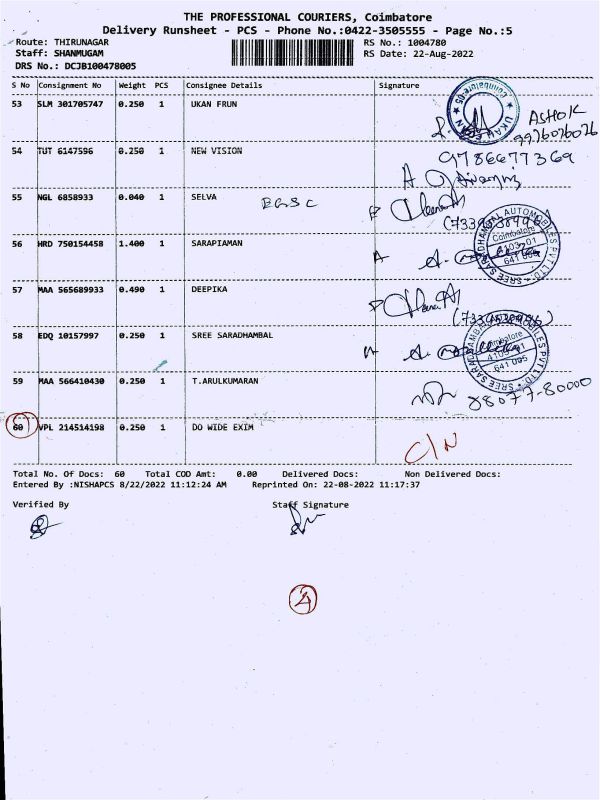 THE PROFESSIONAL COURIERS, Coimbatore
Delivery Runsheet - PCS - Phone No.:0422-3505555 - Page No.:5
Route: THIRUNAGAR RS No.: 1004780
Staff: SHANMUGAM RS Date: 22-Aug-2022
DRS No.: DCJB100478005
S No Consignment No Weight PCS Consignee Details Signature
53 SLM 301705747 0.250 1 UKAN FRUN
ASHOK
9976076076
54 TUT 6147596 0.250 1 NEW VISION
9786677369
55 NGL 6858933 0.040 1 SELVA
56 HRD 750154458 1.400 1 SARAPIAMAN
SREE SARADHAMBAL AUTOMOBILES PVT LTD
Coimbatore
641 005
57 MAA 565689933 0.490 1 DEEPIKA
58 EDQ 10157997 0.250 1 SREE SARADHAMBAL
SREE SARADHAMBAL AUTOMOBILES PVT LTD
Coimbatore
641 005
59 MAA 566410430 0.250 1 T.ARULKUMARAN
88077-80000
60 VPL 214514198 0.250 1 DO WIDE EXIM
C/N
Total No. Of Docs: 60 Total COD Amt: 0.00 Delivered Docs: Non Delivered Docs:
Entered By :NISHAPCS 8/22/2022 11:12:24 AM Reprinted On: 22-08-2022 11:17:37
Verified By Staff Signature